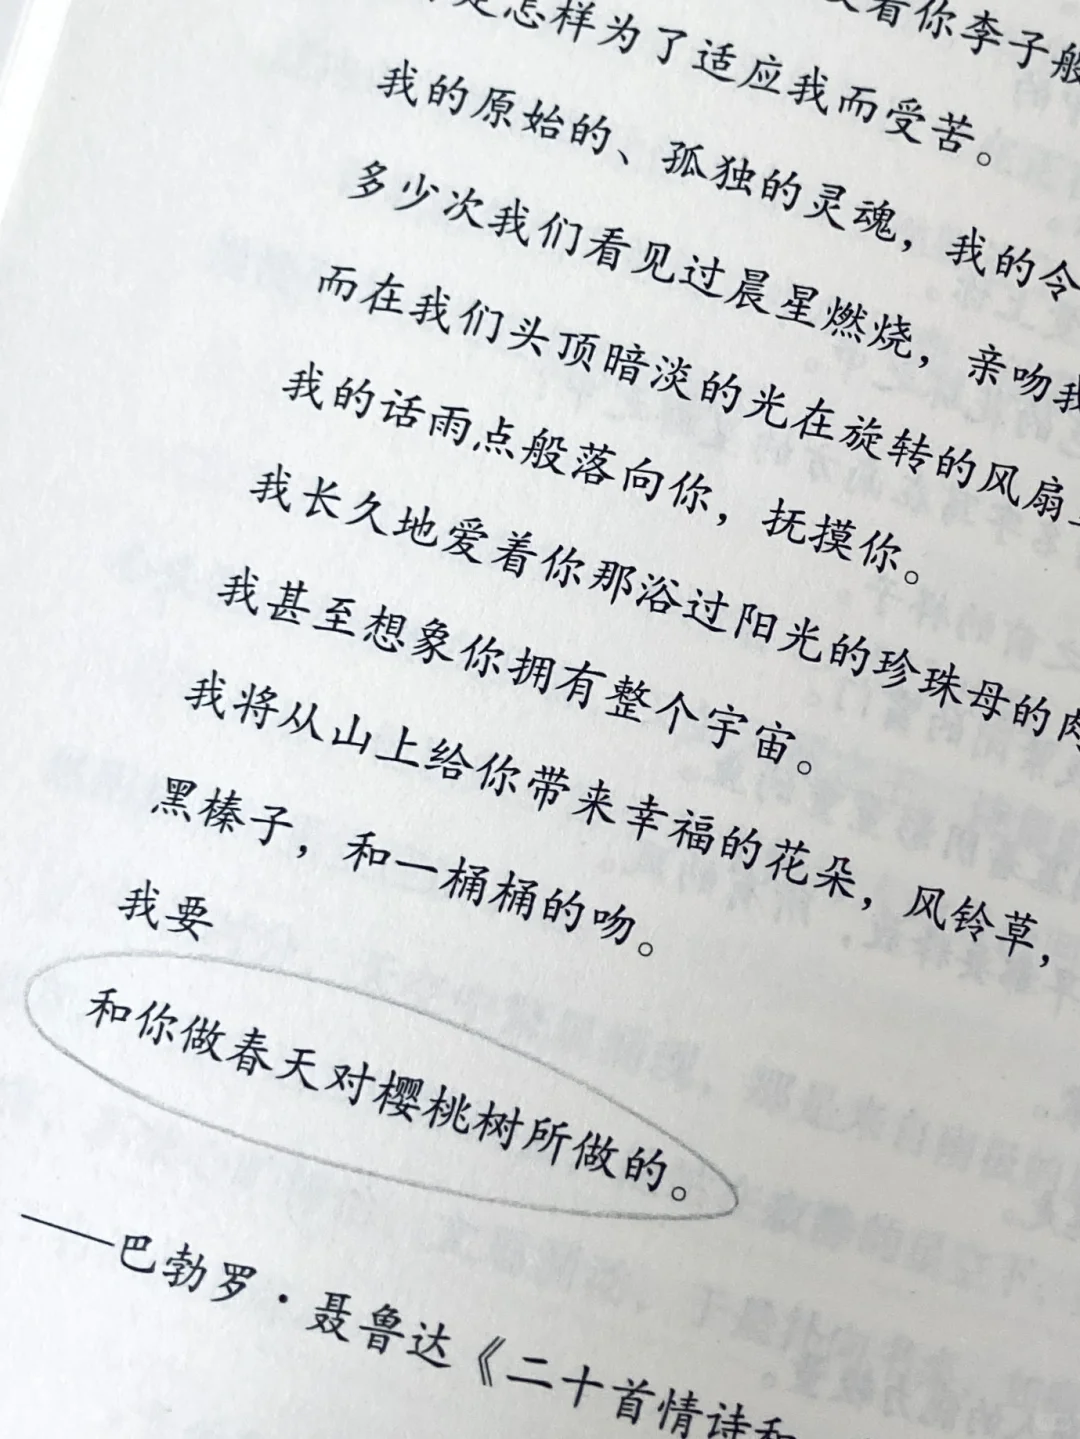 看你李子般
是怎样为了适应我而受苦。
我的原始的、孤独的灵魂，我的令
多少次我们看见过晨星燃烧，亲吻我
而在我们头顶暗淡的光在旋转的风扇
我的话雨点般落向你，抚摸你。
我长久地爱着你那浴过阳光的珍珠母的肉
我甚至想象你拥有整个宇宙。
我将从山上给你带来幸福的花朵，风铃草，
黑榛子，和一桶桶的吻。
我要
和你做春天对樱桃树所做的。
——巴勃罗·聂鲁达《二十首情诗和